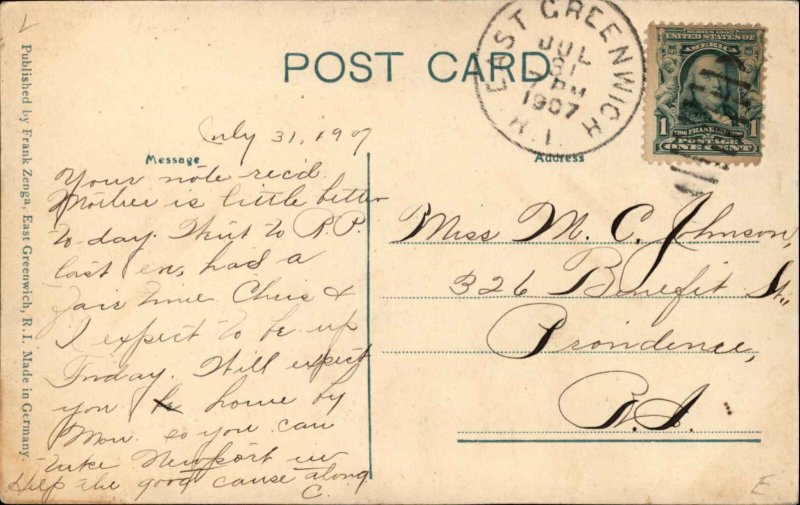 POST CARD
EAST GREENWICH
JUL
31
PM
1907
R.I.
SERIES 1902
UNITED STATES OF
AMERICA
1 1
FRANKLIN
POSTAGE
ONE CENT
Published by Frank Zenga, East Greenwich, R. I. Made in Germany.
Message
July 31, 1907
Your note rec'd.
Mother is little better
to-day. Went to R.P.
last eve, had a
fair time Chris &
I expect to be up
Friday. Will expect
you home by
Mon. so you can
take Newport in
Help the good cause along
C.
Address
Miss M. C. Johnson,
326 Benefit St.,
Providence,
R.I.
E